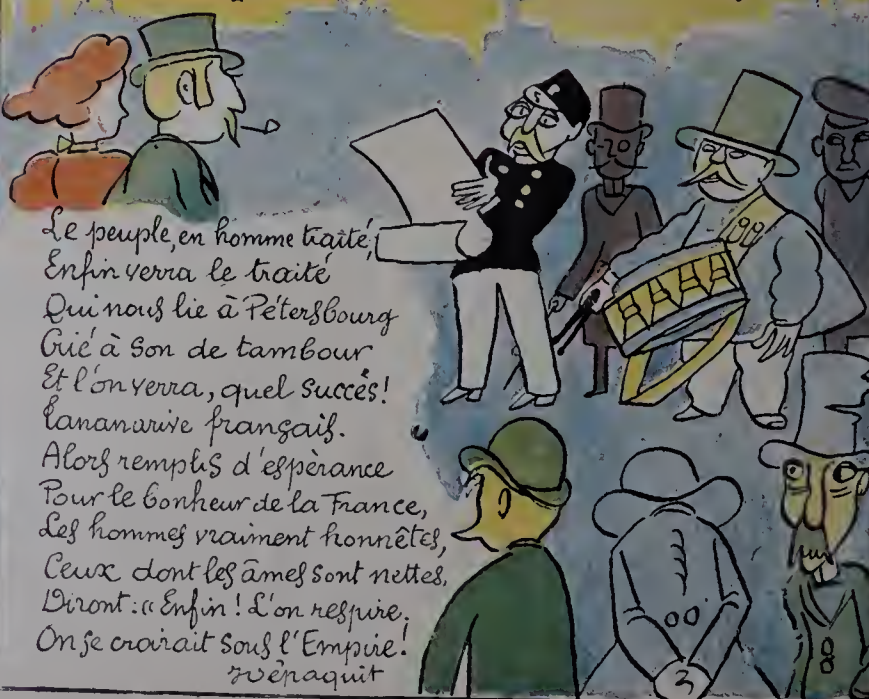 Le peuple, en homme traité,
Enfin verra le traité
Qui nous lie à Pétersbourg
Crié à son de tambour
Et l'on verra, quel succès!
Tananarive français.
Alors remplis d'espèrance
Pour le bonheur de la France,
Les hommes vraiment honnêtes,
Ceux dont les âmes sont nettes,
Diront: « Enfin! L'on respire.
On se croirait sous l'Empire!